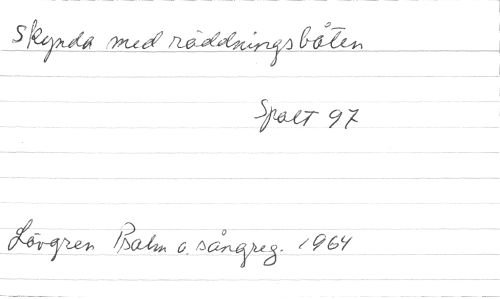 Skynda med räddningsbåten
Spalt 97
Lövgren Psalm o. sångreg. 1964